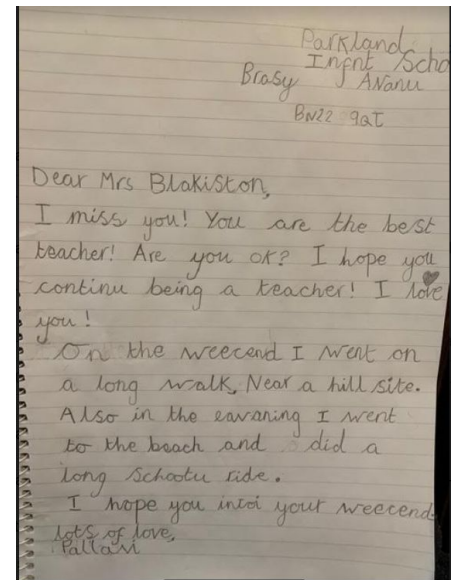 Parkland
Infnt Scho
Brasy Avanu
BN22 9QT
Dear Mrs Blakiston,
I miss you! You are the best
teacher! Are you ok? I hope you
continu being a teacher! I love
you!
On the weecend I went on
a long walk, Near a hill site.
Also in the eavaning I went
to the beach and did a
long Schootu ride.
I hope you intoi your weecend.
lots of love,
Pallavi